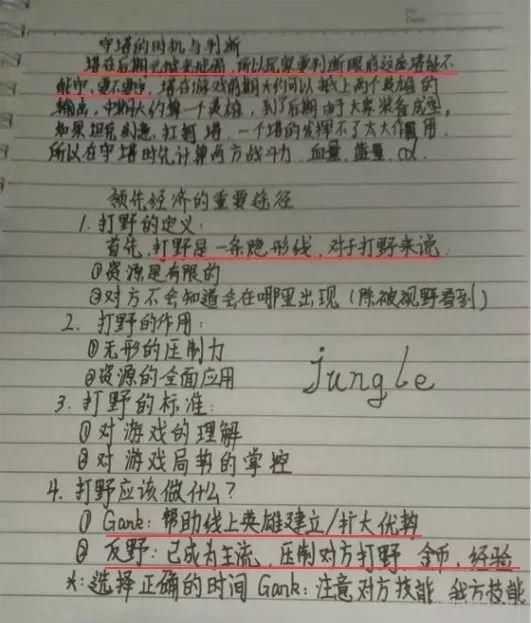 守塔的时机与判断
塔在后期越来越脆,所以玩家要判断眼前这座塔能不
能守,要不要守,塔在游戏前期大约可以抵上两个英雄的
输出,中期大约算一个英雄,到了后期由于大家装备成型,
如果坦克刻意扛着塔,一个塔的发挥不了太大作用
所以在守塔时先计算两方战斗力,血量,能量,cd.
领先经济的重要途径
1. 打野的定义:
首先,打野是一条隐形线,对于打野来说
①资源是有限的
②对方不会知道会在哪里出现(除被视野看到)
2. 打野的作用:
①无形的压制力
②资源的全面应用
jungle
3. 打野的标准:
①对游戏的理解
②对游戏局势的掌控
4. 打野应该做什么?
① Gank: 帮助线上英雄建立/扩大优势
② 反野: 已成为主流,压制对方打野,金币,经验
*: 选择正确的时间 Gank: 注意对方技能,我方技能